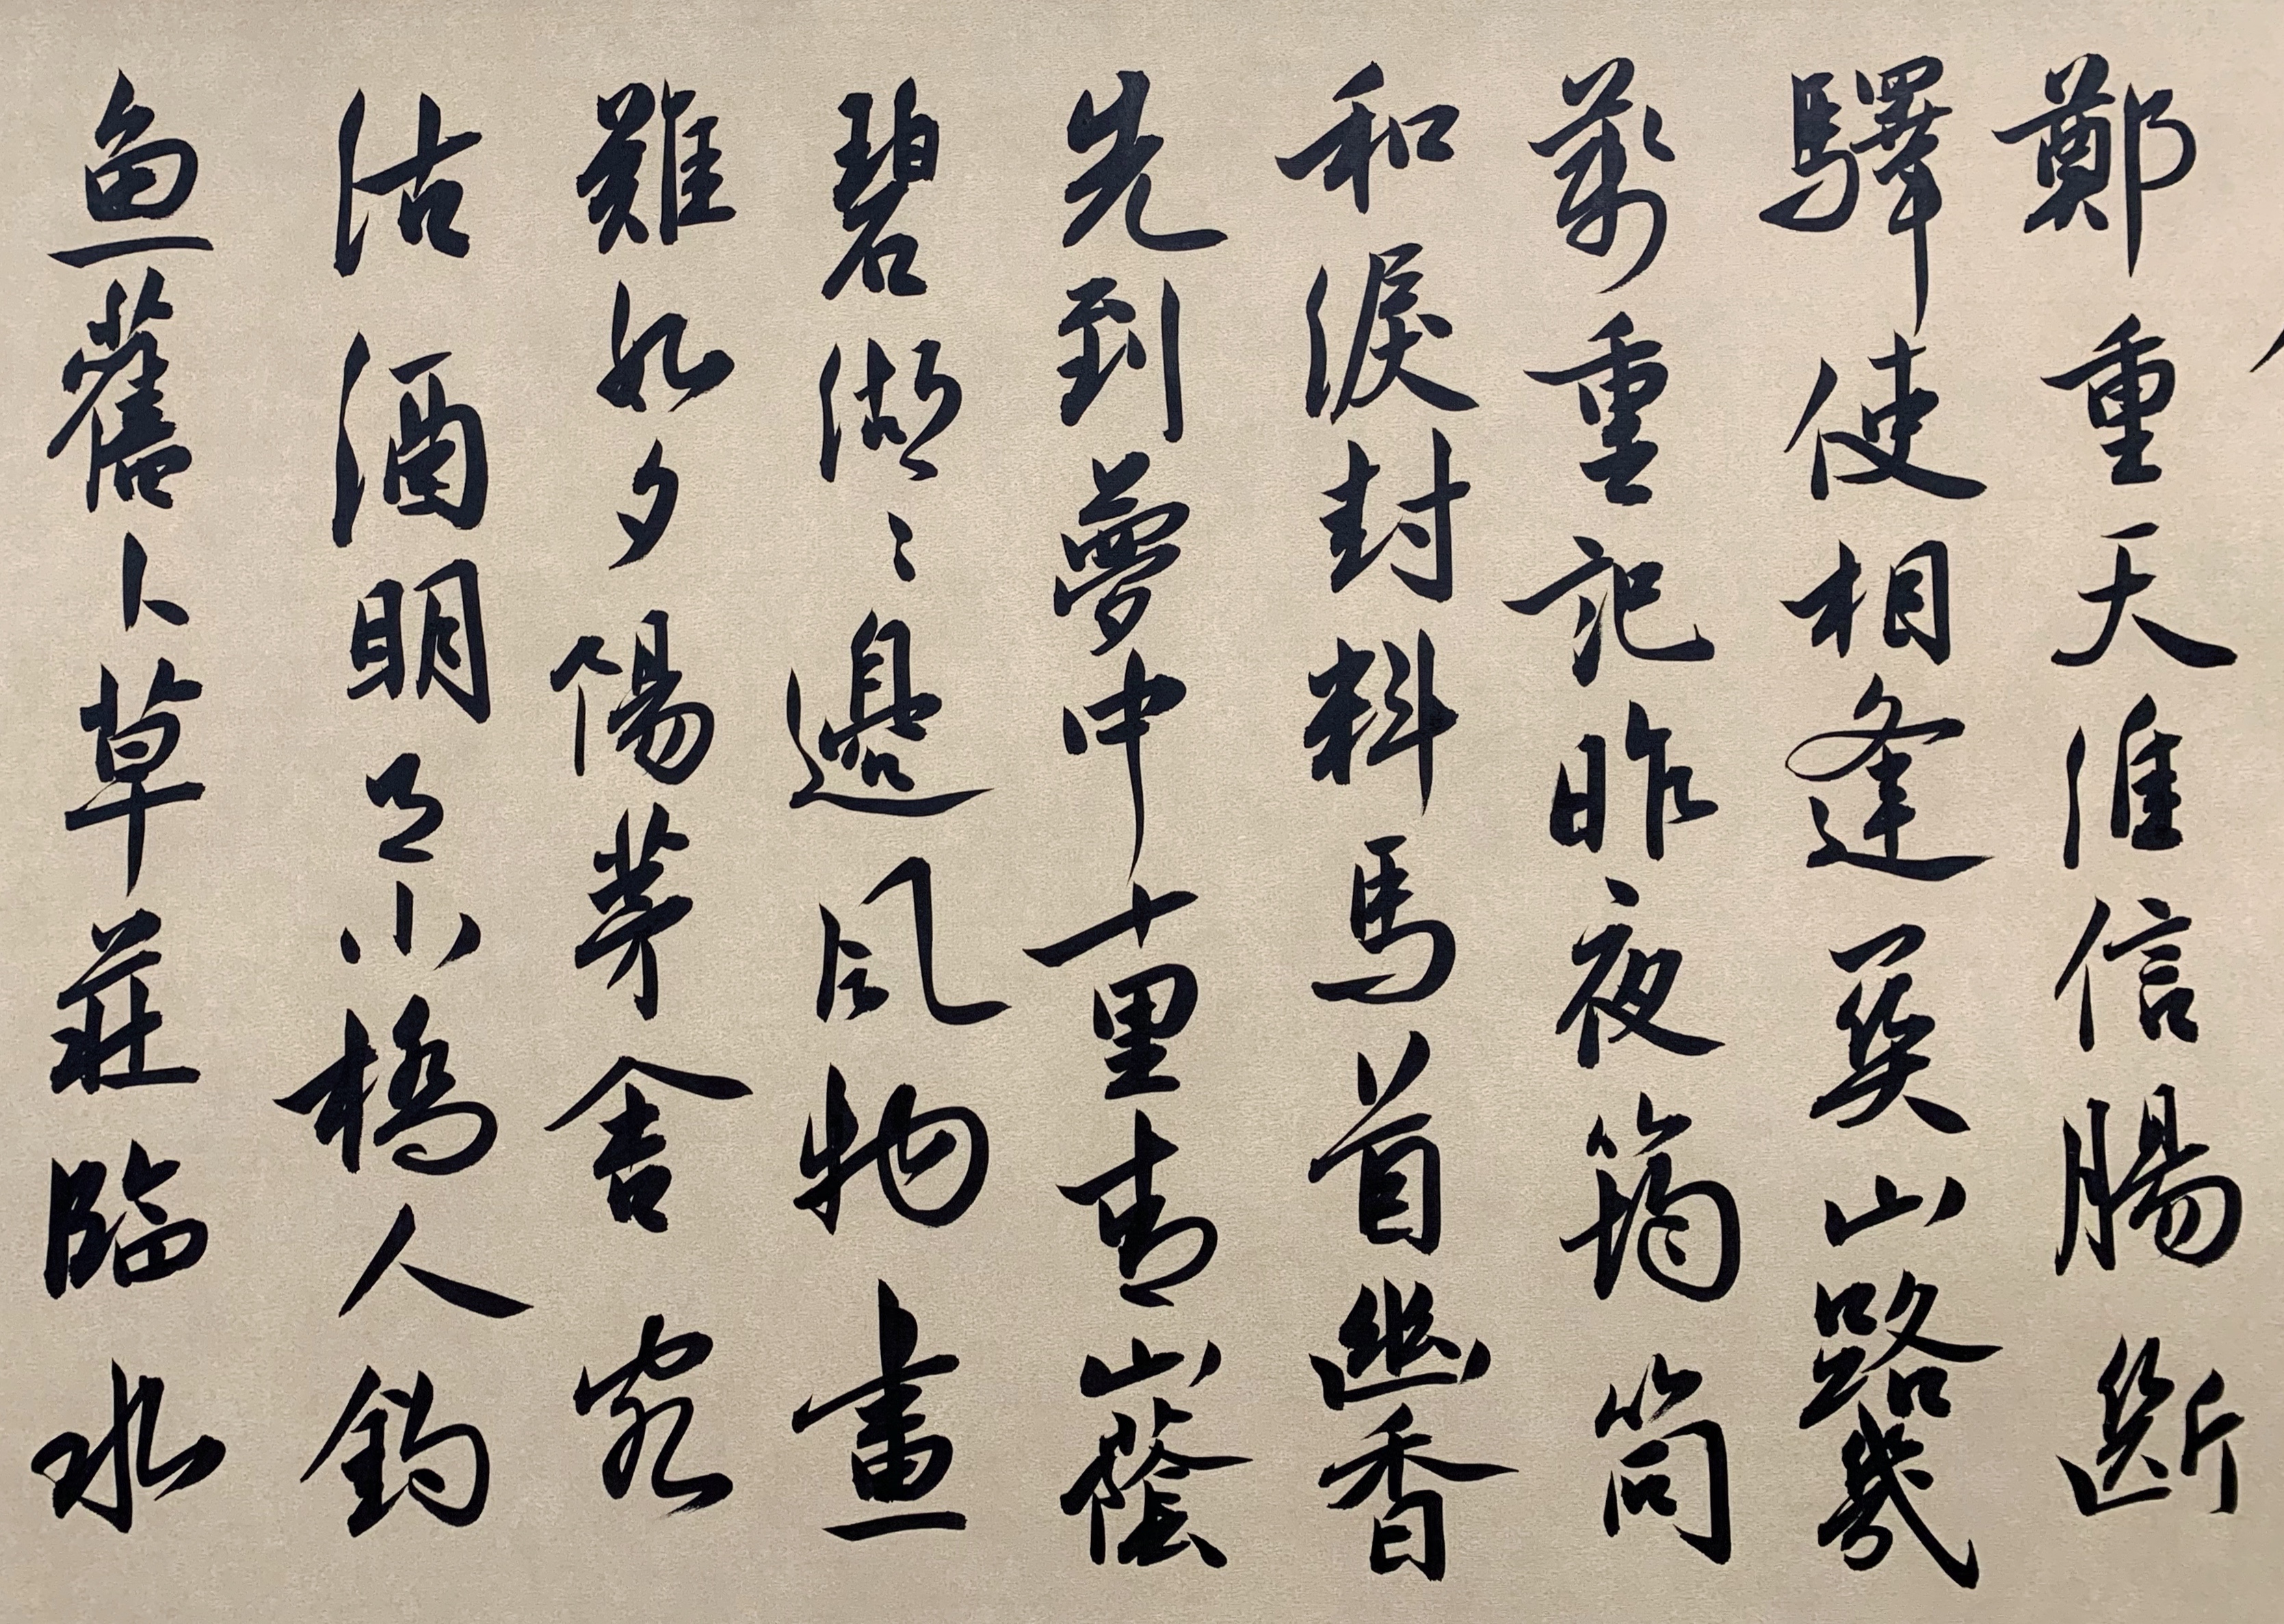 鄭重天涯信腸斷
驛使相逢關山路幾
萬重記昨夜筠筒
和淚封料馬首幽香
先到夢中十里青山蔭
碧湖〻邊風物畫
難如夕陽茅舍客
沽酒明月小橋人釣
魚舊卜草莊臨水